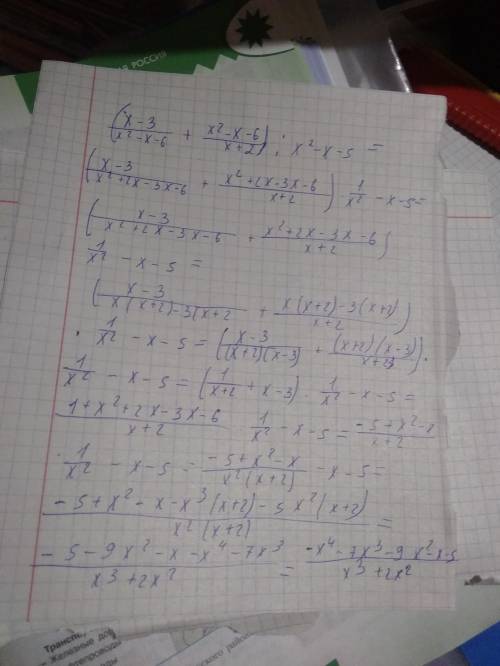 АЯ РОССИЯ
((x-3)/(x²-x-6) + (x²-x-6)/(x+2)) : x²-x-5 =
((x-3)/(x²+2x-3x-6) + (x²+2x-3x-6)/(x+2)) 1/x² -x-5=
((x-3)/(x²+2x-3x-6) + (x²+2x-3x-6)/(x+2))
1/x² -x-5 =
((x-3)/(x(x+2)-3(x+2) + (x(x+2)-3(x+2))/(x+2))
· 1/x² -x-5 = ((x-3)/((x+2)(x-3)) + ((x+2)(x-3))/(x+2)) ·
1/x² -x-5 = (1/(x+2) + x-3) · 1/x² -x-5 =
(1+x²+2x-3x-6)/(x+2) 1/x² -x-5 = (-5+x²-x)/(x+2)
· 1/x² -x-5 = (-5+x²-x)/(x²(x+2)) -x-5 =
(-5+x²-x-x³(x+2)-5x²(x+2))/(x²(x+2)) =
(-5-9x²-x-x⁴-7x³)/(x³+2x²) = (-x⁴-7x³-9x²-x-5)/(x³+2x²)
Трансп
Железные до